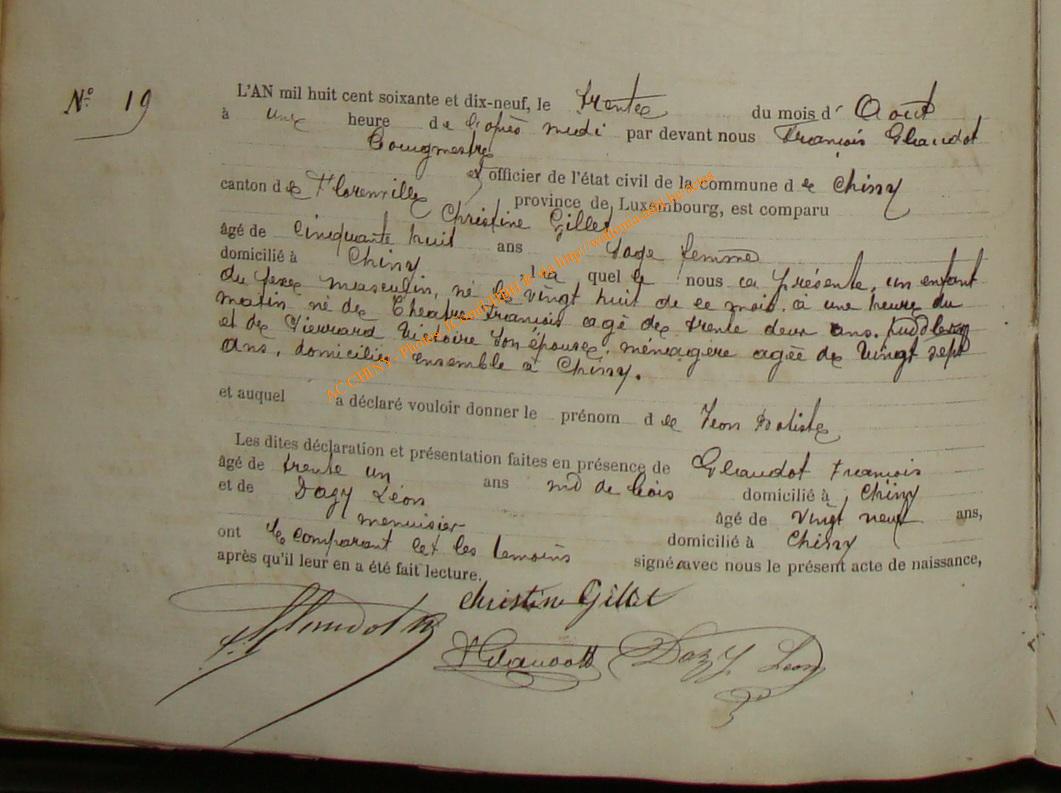 N° 19
L'AN mil huit cent soixante et dix-neuf, le trente du mois d' Août
à une heure de l'après midi par devant nous François Glaudot
Bougmestre
et officier de l'état civil de la commune de Chiny
canton de Florenville province de Luxembourg, est comparu
Christine Gillet
âgé de Cinquante huit ans Sage femme
domicilié à Chiny
la quel le nous a présenté, un enfant
du sexe masculin, né le vingt huit de ce mois, à une heure du
matin né de Théatre François agé de trente deux ans,
et de Victoire son épouse, ménagère agée de Vingt sept
ans, domiciliés ensemble à Chiny.
et auquel a déclaré vouloir donner le prénom de Léon Batiste
Les dites déclaration et présentation faites en présence de Glaudot François
âgé de trente un ans md de bois domicilié à Chiny
et de Dazy Léon
menuisier âgé de vingt neuf ans,
domicilié à Chiny
ont le comparant et les temoins signé avec nous le présent acte de naissance,
après qu'il leur en a été fait lecture.
Christine Gillet
Glaudot
Dazy Léon